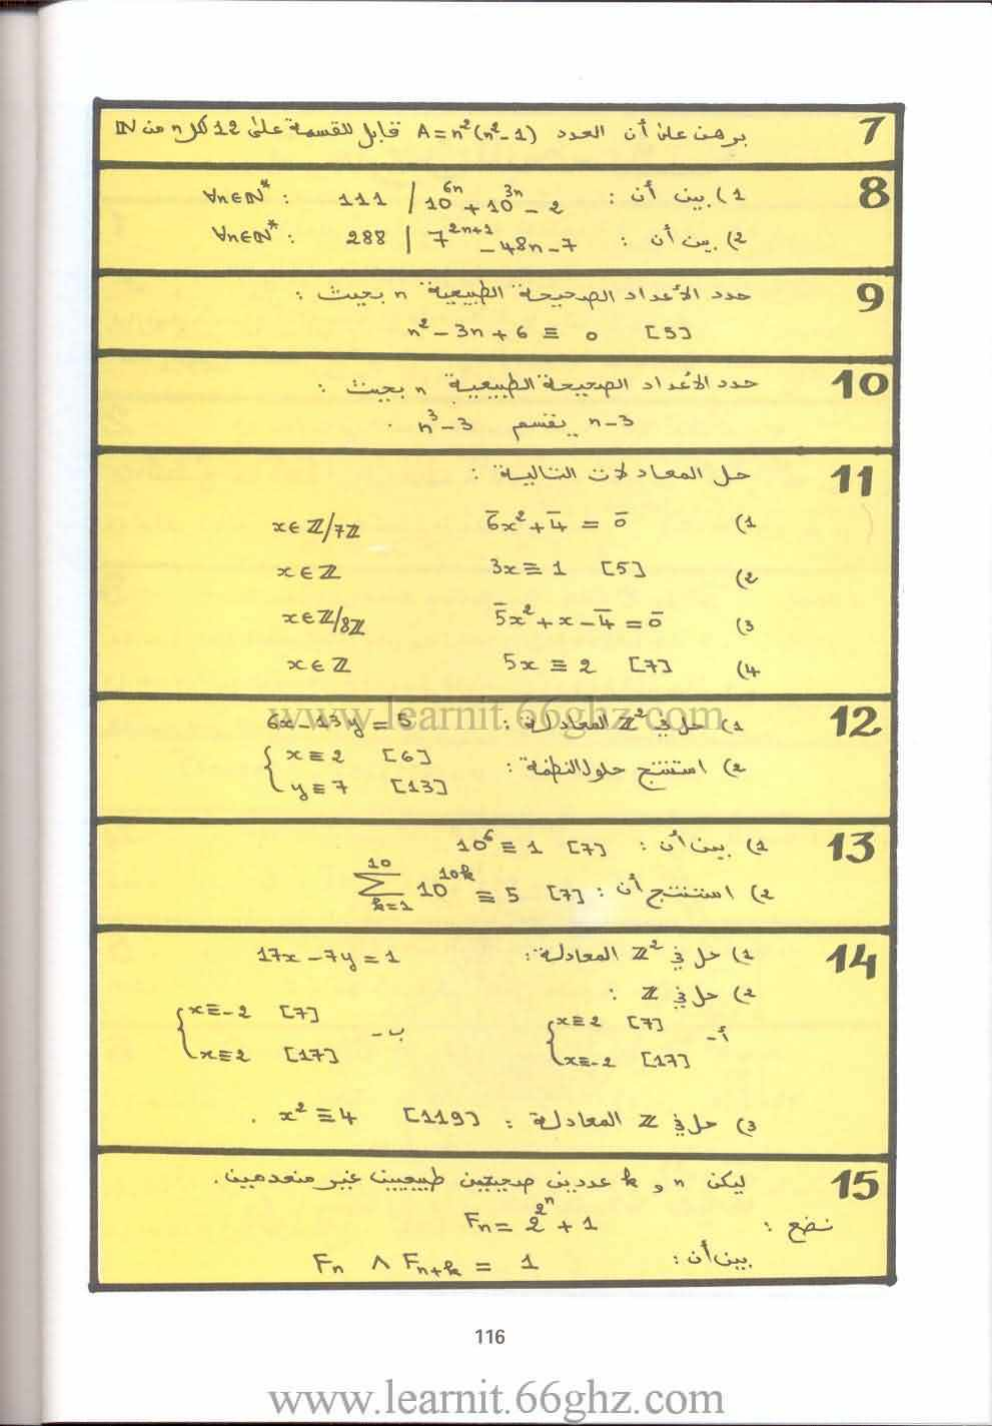 7 برهن على أن العدد A = n²(n² - 1) قابل للقسمة على 12 لكل n من ℕ
8 1) بين أن : 111 | 10^{6n} + 10^{3n} - 2 : ∀n∈ℕ*
2) بين أن : 288 | 7^{2n+1} - 48n - 7 : ∀n∈ℕ*
9 حدد الأعداد الصحيحة الطبيعية n بحيث :
n² - 3n + 6 ≡ 0 [5]
10 حدد الأعداد الصحيحة الطبيعية n بحيث :
n-3 يقسم n³-3 .
11 حل المعادلات التالية :
1) 6̄x² + 4̄ = 0̄ x∈ℤ/7ℤ
2) 3x ≡ 1 [5] x∈ℤ
3) 5̄x² + x - 4̄ = 0̄ x∈ℤ/8ℤ
4) 5x ≡ 2 [7] x∈ℤ
12 1) حل في ℤ² المعادلة : 6x - 13y = 5
2) استنتج حلول النظمة : { x ≡ 2 [6]
y ≡ 7 [13]
13 1) بين أن : 10⁶ ≡ 1 [7]
2) استنتج أن : \sum_{k=1}^{10} 10^{10^k} ≡ 5 [7]
14 1) حل في ℤ² المعادلة : 17x - 7y = 1
2) حل في ℤ :
أ- { x ≡ 2 [7] ب- { x ≡ -2 [7]
x ≡ -2 [17] x ≡ 2 [17]
3) حل في ℤ المعادلة : x² ≡ 4 [119] .
15 ليكن n و k عددين صحيحين طبيعيين غير منعدمين .
نضع : F_n = 2^{2^n} + 1
بين أن : F_n ∧ F_{n+k} = 1
116
www.learnit.66ghz.com
www.learnit.66ghz.com